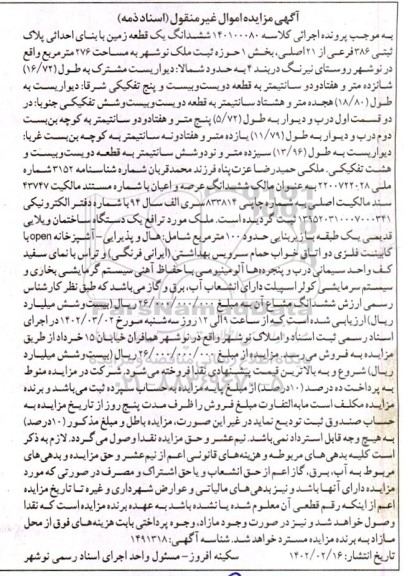 آگهی مزایده اموال غیرمنقول (اسناد ذمه)
به موجب پرونده اجرائی کلاسه ۱۴۰۱۰۰۰۸۰ ششدانگ یک قطعه زمین با بنای احداثی پلاک
ثبتی ۳۸۶ فرعی از ۲۱ اصلی، بخش ۱ حوزه ثبت ملک نوشهر به مساحت ۲۷۶ مترمربع واقع
در نوشهر روستای نیرنگ دربند ۴ به حدود شمالا: دیواریست مشترک به طول (۱۶/۷۲)
شانزده متر و هفتادودو سانتیمتر به قطعه دویست و بیست و پنج تفکیکی شرقا: دیواریست به
طول (۱۸/۸۰) هجده متر و هشتاد سانتیمتر به قطعه دویست و بیست و شش تفکیکی جنوبا: در
دو قسمت اول درب و دیوار به طول (۵/۷۲) پنج متر و هفتادودو سانتیمتر به کوچه بن بست
دوم درب و دیوار به طول (۱۱/۷۹) یازده متر و هفتادونه سانتیمتر به کوچه بن بست غربا:
دیواریست به طول (۱۳/۹۶) سیزده متر و نودوشش سانتیمتر به قطعه دویست و بیست و
هشت تفکیکی. ملکی حمیدرضا عزت پناه فرزند محمدقربان شماره شناسنامه ۳۱۵۲ شماره
ملی ۲۲۰۰۷۲۲۰۲۸ به عنوان مالک ششدانگ عرصه و اعیان با شماره مستند مالکیت ۴۳۷۴۷
سند مالکیت اصلی به شماره چاپی ۸۳۳۸۱۴ سری الف سال ۹۴ با شماره دفتر الکترونیکی
۱۳۹۵۲۰۳۱۰۰۰۷۰۰۰۳۴۱ ثبت گردیده است. ملک مورد ترافع یک دستگاه ساختمان ویلایی
قدیمی یک طبقه با زیربنایی حدود ۱۰۰ مترمربع شامل: هال و پذیرایی - آشپزخانه open با
کابینت فلزی دو اتاق خواب حمام سرویس بهداشتی (ایرانی فرنگی) و تراس با نمای سفید
کف واحد سیمانی درب و پنجره‌ها آلومینیومی با حفاظ آهنی سیستم گرمایشی بخاری و
سیستم سرمایشی کولر اسپیلت دارای انشعاب آب، برق و گاز می باشد که طبق نظر کارشناس
رسمی ارزش ششدانگ مشاع آن به مبلغ ۲۶/۰۰۰/۰۰۰/۰۰۰ ریال (بیست و شش میلیارد
ریال) ارزیابی شده است که از ساعت ۹ الی ۱۲ روز سه شنبه مورخ ۱۴۰۲/۰۳/۰۲ در اجرای
اسناد رسمی ثبت اسناد و املاک نوشهر واقع در نوشهر همافران خیابان ۱۵ خرداد از طریق
مزایده به فروش می رسد. مزایده از مبلغ ۲۶/۰۰۰/۰۰۰/۰۰۰ ریال (بیست و شش میلیارد
ریال) شروع و به بالاترین قیمت پیشنهادی نقدا فروخته می شود. شرکت در مزایده منوط
به پرداخت ده درصد (۱۰درصد) از مبلغ پایه مزایده به حساب سپرده ثبت می باشد و برنده
مزایده مکلف است مابه التفاوت مبلغ فروش را ظرف مدت پنج روز از تاریخ مزایده به
حساب صندوق ثبت تودیع نماید در غیر این صورت، مزایده باطل و مبلغ مذکور (۱۰درصد)
به هیچ وجه قابل استرداد نمی باشد. نیم عشر و حق مزایده نقدا وصول می گردد. لازم به ذکر
است کلیه بدهی های مربوطه و هزینه های قانونی اعم از نیم عشر و حق مزایده و بدهی های
مربوط به آب، برق، گاز اعم از حق انشعاب و یا حق اشتراک و مصرف در صورتی که مورد
مزایده دارای آنها باشد و نیز بدهی های مالیاتی و عوارض شهرداری و غیره تا تاریخ مزایده
اعم از اینکه رقم قطعی آن معلوم شده یا نشده باشد به عهده برنده مزایده است که نقدا
وصول خواهد شد و نیز در صورت وجود مازاد، وجوه پرداختی بابت هزینه های فوق از محل
مازاد به برنده مزایده مسترد خواهد شد. شناسه آگهی: ۱۴۹۱۳۱۸
تاریخ انتشار: ۱۴۰۲/۰۲/۱۶ سکینه افروز - مسئول واحد اجرای اسناد رسمی نوشهر